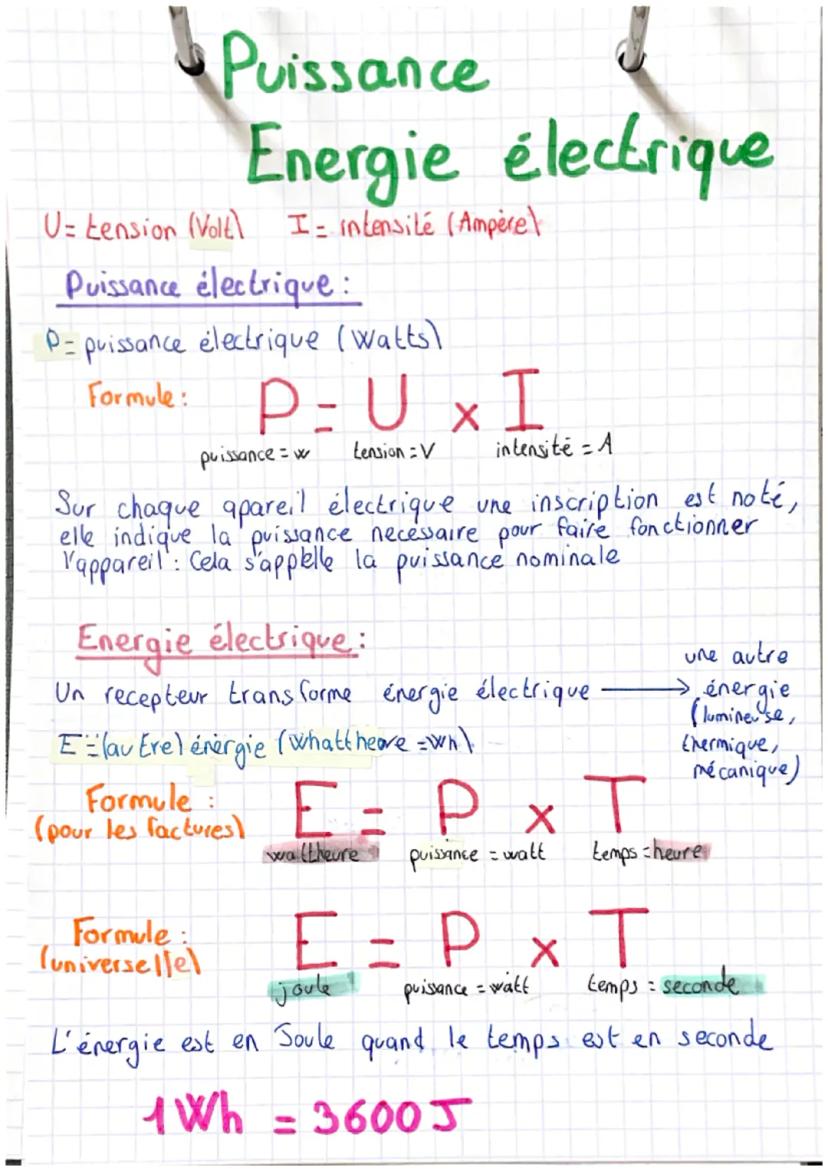 Puissance
Energie électrique
U= tension (Volt) I = intensité (Ampère)
Puissance électrique :
P= puissance électrique (Watts)
Formule : P = U x I
puissance = w tension = V intensité = A
Sur chaque apareil électrique une inscription est noté,
elle indique la puissance necessaire pour faire fonctionner
l'appareil : Cela s'applelle la puissance nominale
Energie électrique :
Un recepteur transforme énergie électrique → une autre
énergie
(lumineuse,
thermique,
mécanique)
E = (autre) énérgie (Whattheore = Wh)
Formule :
(pour les factures) E = P x T
wattheure puissance = watt temps = heure
Formule :
(universelle) E = P x T
joule puissance = watt temps = seconde
L'énergie est en Joule quand le temps est en seconde
1Wh = 3600J